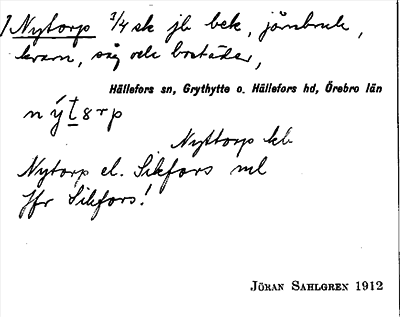 1 Nytorp 3/4 sk jb bek, järnbruk,
kvarn, såg och bostäder,
Hällefors sn, Grythytte o. Hällefors hd, Örebro län
nýt8rp
Nyttorp kb
Nytorp el. Sikfors ml
Jfr Sikfors!
JÖRAN SAHLGREN 1912